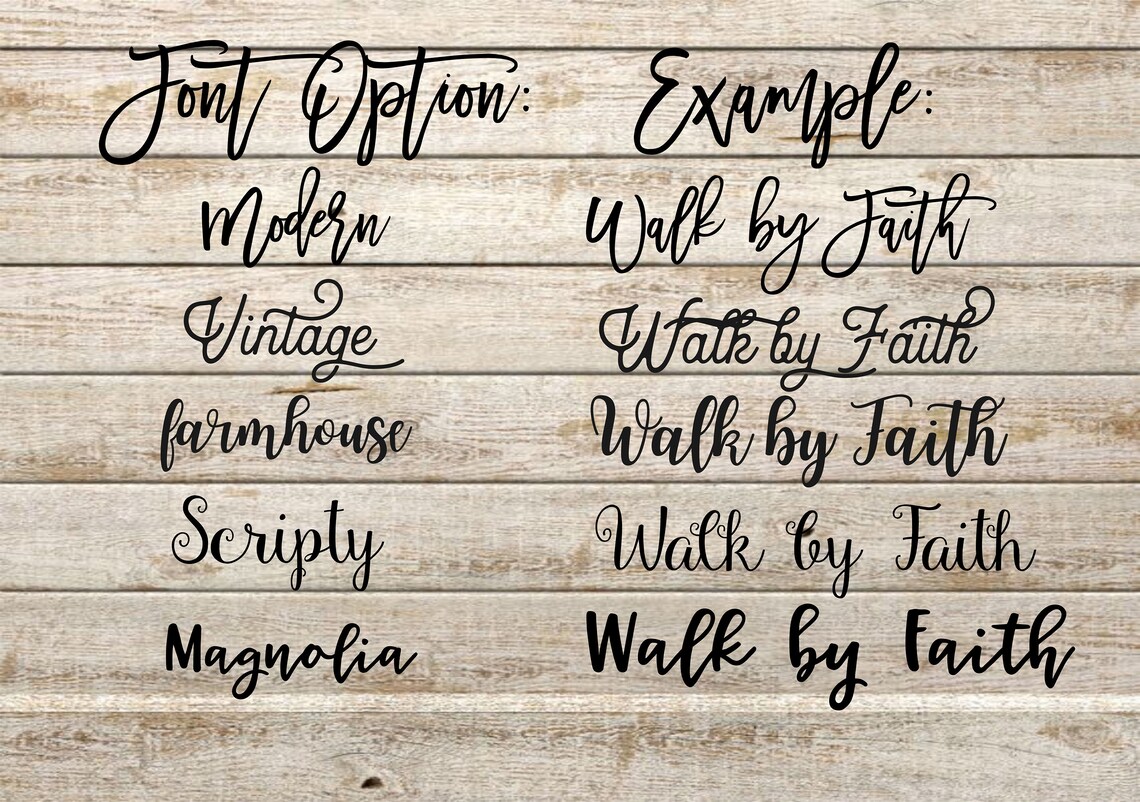 Font Option: Example:
Modern Walk by Faith
Vintage Walk by Faith
farmhouse Walk by Faith
Scripty Walk by Faith
Magnolia Walk by Faith